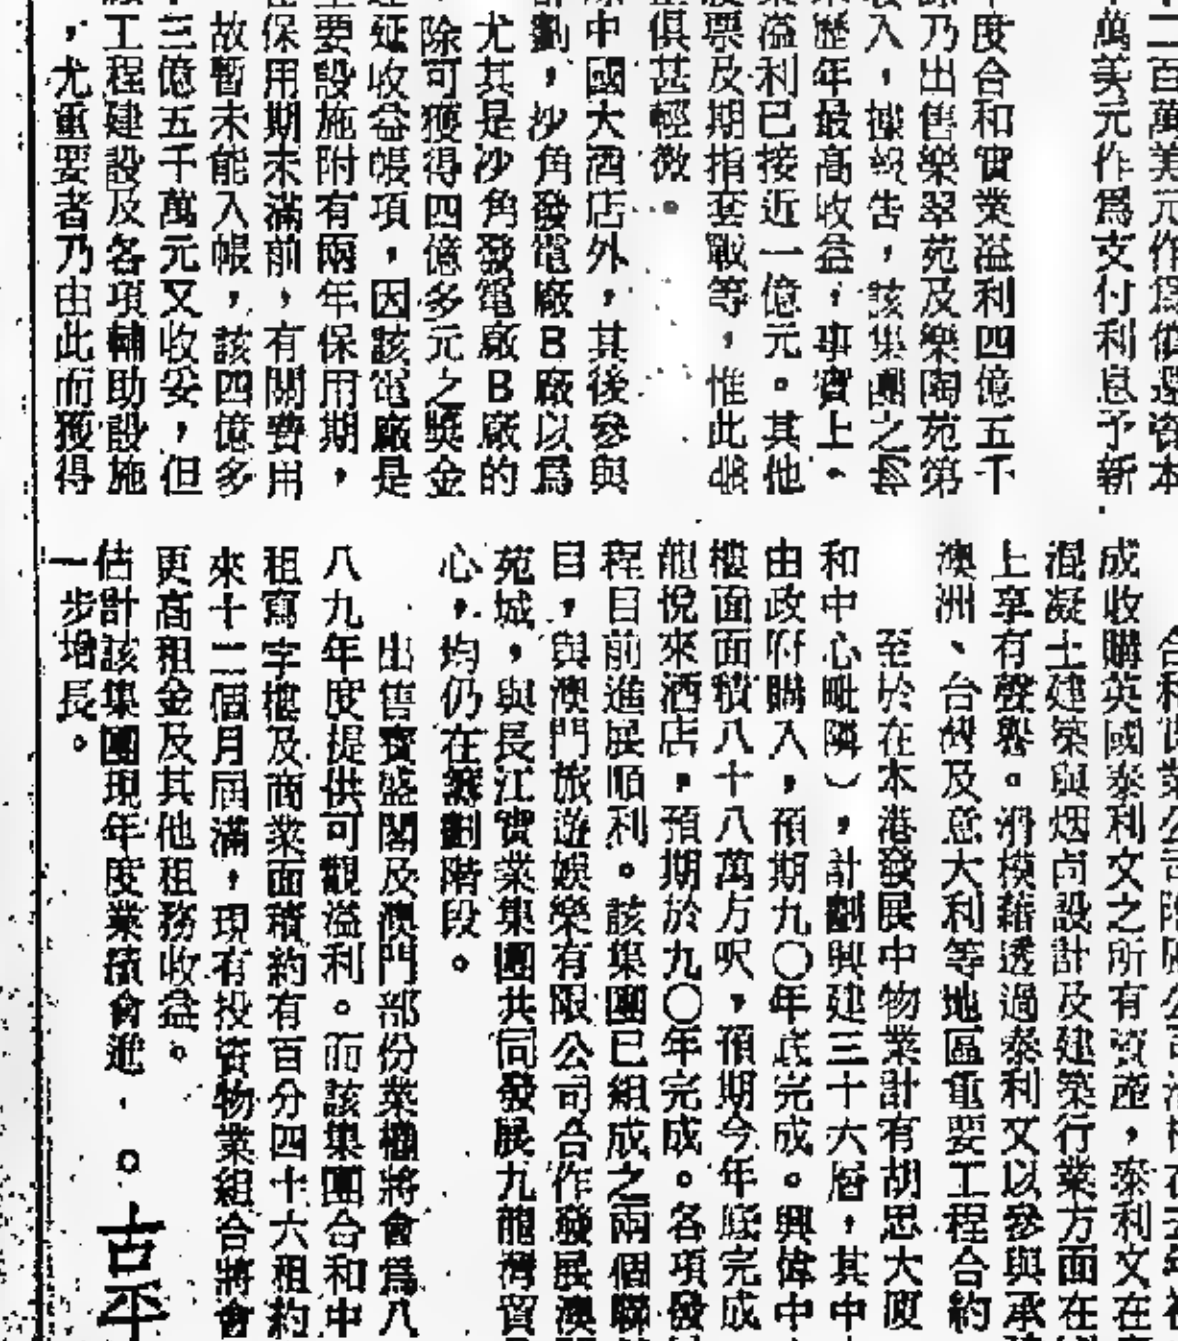 二百萬美元作爲償還資本
萬美元作爲支付利息予新
度合和實業溢利四億五千
乃出售樂翠苑及樂陶苑第
入，據報告，該集團之
歷年最高收益，事實上，
溢利已接近一億元。其他
股票及期指套戰等，惟此
俱甚輕微。
中國大酒店外，其後參與
劃，沙角發電廠B廠以爲
尤其是沙角發電廠B廠的
除可獲得四億多元之獎金
延收益帳項，因該電廠是
要設施附有兩年保用期，
保用期未滿前，有關費用
故暫未能入帳，該四億多
三億五千萬元又收妥，但
工程建設及各項輔助設施
，尤重要者乃由此而獲得
成收購英國泰利文之所有資產，泰利文在
混凝土建築與烟囱設計及建築行業方面在
上享有聲譽。滑模藉透過泰利文以參與承
澳洲、台灣及意大利等地區重要工程合約
至於在本港發展中物業計有胡忠大廈
和中心毗隣），計劃興建三十六層，其中
由政府購入，預期九〇年底完成。興偉中
樓面面積八十八萬方呎，預期今年底完成
龍悅來酒店，預期於九〇年完成。各項發
程目前進展順利。該集團已組成之兩個聯
目，與澳門旅遊娛樂有限公司合作發展澳
苑城，與長江實業集團共同發展九龍灣貿
心，均仍在籌劃階段。
出售寶盛閣及澳門部份業權將會爲八
八九年度提供可觀溢利。而該集團合和中
租寫字樓及商業面積約有百分四十六租約
來十二個月屆滿，現有投資物業組合將會
更高租金及其他租務收益。
估計該集團現年度業績會進
一步增長。
古平